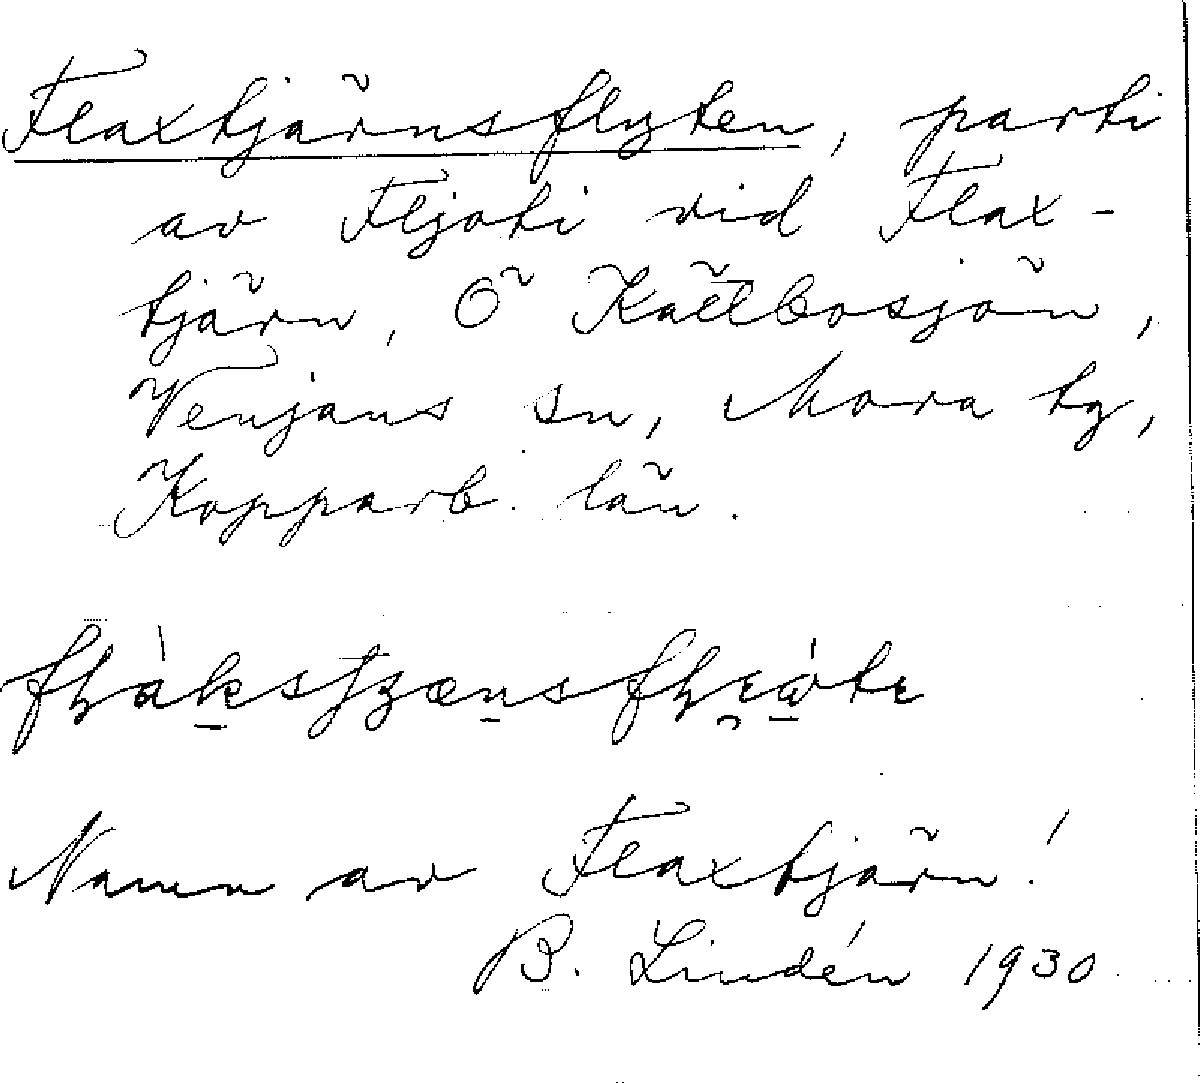 Flaxtjärnsflyten, parti
av Fljoti vid Flax-
tjärn, Ö Källbosjön,
Venjans sn, Mora tg,
Kopparb. län.
Namn av Flaxtjärn!
B. Lindén 1930